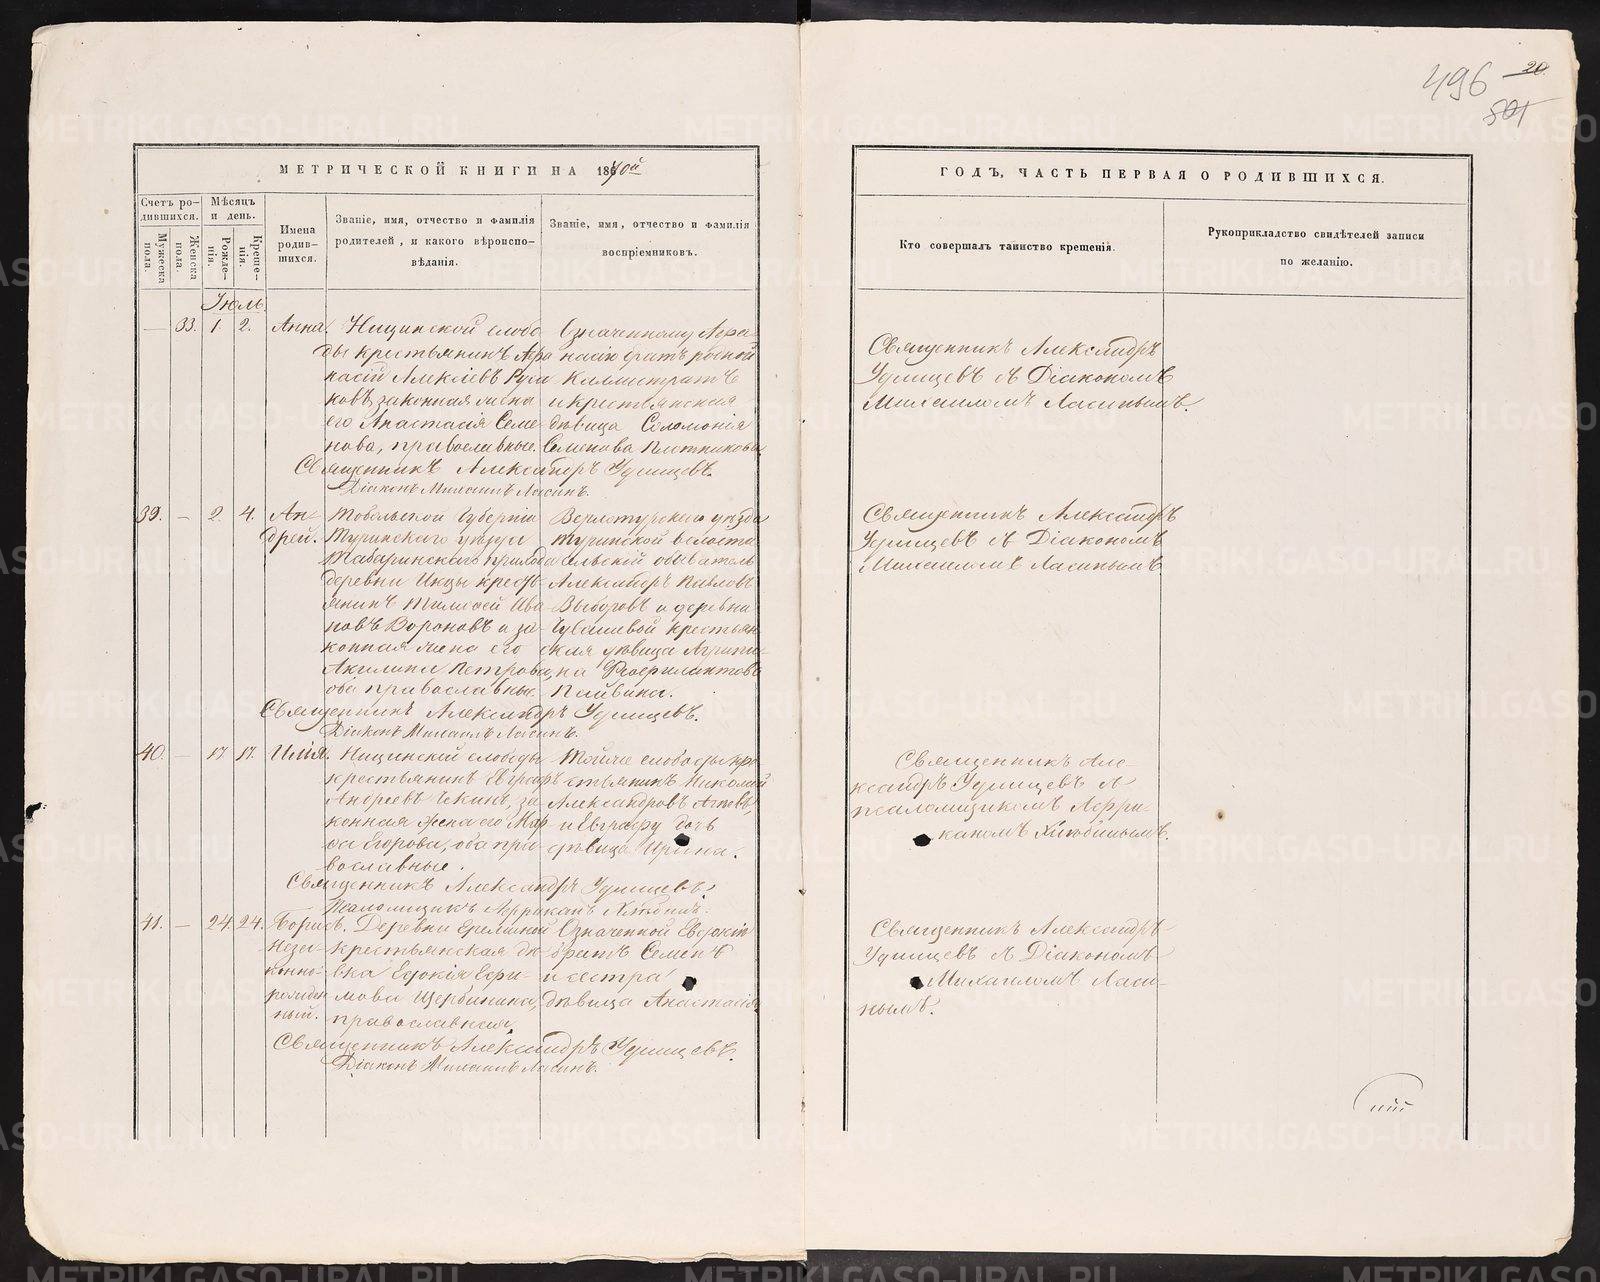 496 20.
801
МЕТРИЧЕСКОЙ КНИГИ НА 1870й
ГОДЪ, ЧАСТЬ ПЕРВАЯ О РОДИВШИХСЯ.
Счетъ ро-
дившихся.
Мужеска
пола.
Женска
пола.
Мѣсяцъ
и день.
Рожде-
нія.
Креще-
нія.
Имена
родив-
шихся.
Званіе, имя, отчество и фамилія
родителей, и какого вѣроиспо-
вѣданія.
Званіе, имя, отчество и фамилія
воспріемниковъ.
Кто совершалъ таинство крещенія.
Рукоприкладство свидѣтелей записи
по желанію.
Іюль
— 33. 1. 2. Анна.
Ницинской слобо
ды крестьянинъ Афа
насій Алексѣевъ
ковъ, законная жена
его Анастасія Семе-
нова, православные.
Означенному Афа-
насію братъ родной
Каллистратъ
и крестьянская
дѣвица Соломонія
Семенова Плотникова
Священникъ Александръ Удинцевъ.
Діаконъ Михаилъ Ласинъ.
Священникъ Александръ
Удинцевъ съ Діакономъ
Михаиломъ Ласинымъ.
39. — 2. 4. Ан-
дрей.
Тобольской Губерніи
Туринскаго уѣзда
Табаринскаго прихода
деревни Икцы крест-
янинъ Тимофей Ива-
новъ Вороновъ и за-
конная жена его
Акилина Петрова,
оба православные.
Верхотурскаго уѣзда
Туринской волости
сельской обыватель
Александръ Павловъ
Выборовъ и деревни
Чувашевой крестьян
ская дѣвица Агрипи-
на Феофилактова
Пайвина.
Священникъ Александръ Удинцевъ.
Діаконъ Михаилъ Ласинъ.
Священникъ Александръ
Удинцевъ съ Діакономъ
Михаиломъ Ласинымъ
40. — 17 17. Илія.
Ницинской слободы
крестьянинъ Евграфъ
Андреевъ Чекинъ, за-
конная жена его Мар
ѳа Егорова, оба пра-
вославные.
Тойже слободы кре
стьянинъ Николай
Александровъ
и Евграфу дочь
дѣвица Ирина.
Священникъ Александръ Удинцевъ.
Псаломщикъ Африканъ Хлѣбинъ.
Священникъ Але-
ксандръ Удинцевъ съ
псаломщикомъ Афри-
каномъ Хлѣбинымъ.
41. — 24. 24. Борисъ.
Неза-
конно-
рожден
ный.
Деревни Еремкиной
крестьянская дѣ-
вка Евдокія Ефи-
мова Щербинина,
православная.
Означенной Евдокіи
братъ Семенъ
и сестра
дѣвица Анастасія.
Священникъ Александръ Удинцевъ.
Діаконъ Михаилъ Ласинъ.
Священникъ Александръ
Удинцевъ съ Діакономъ
Михаиломъ Ласи-
нымъ.
METRIKI.GASO-URAL.RU